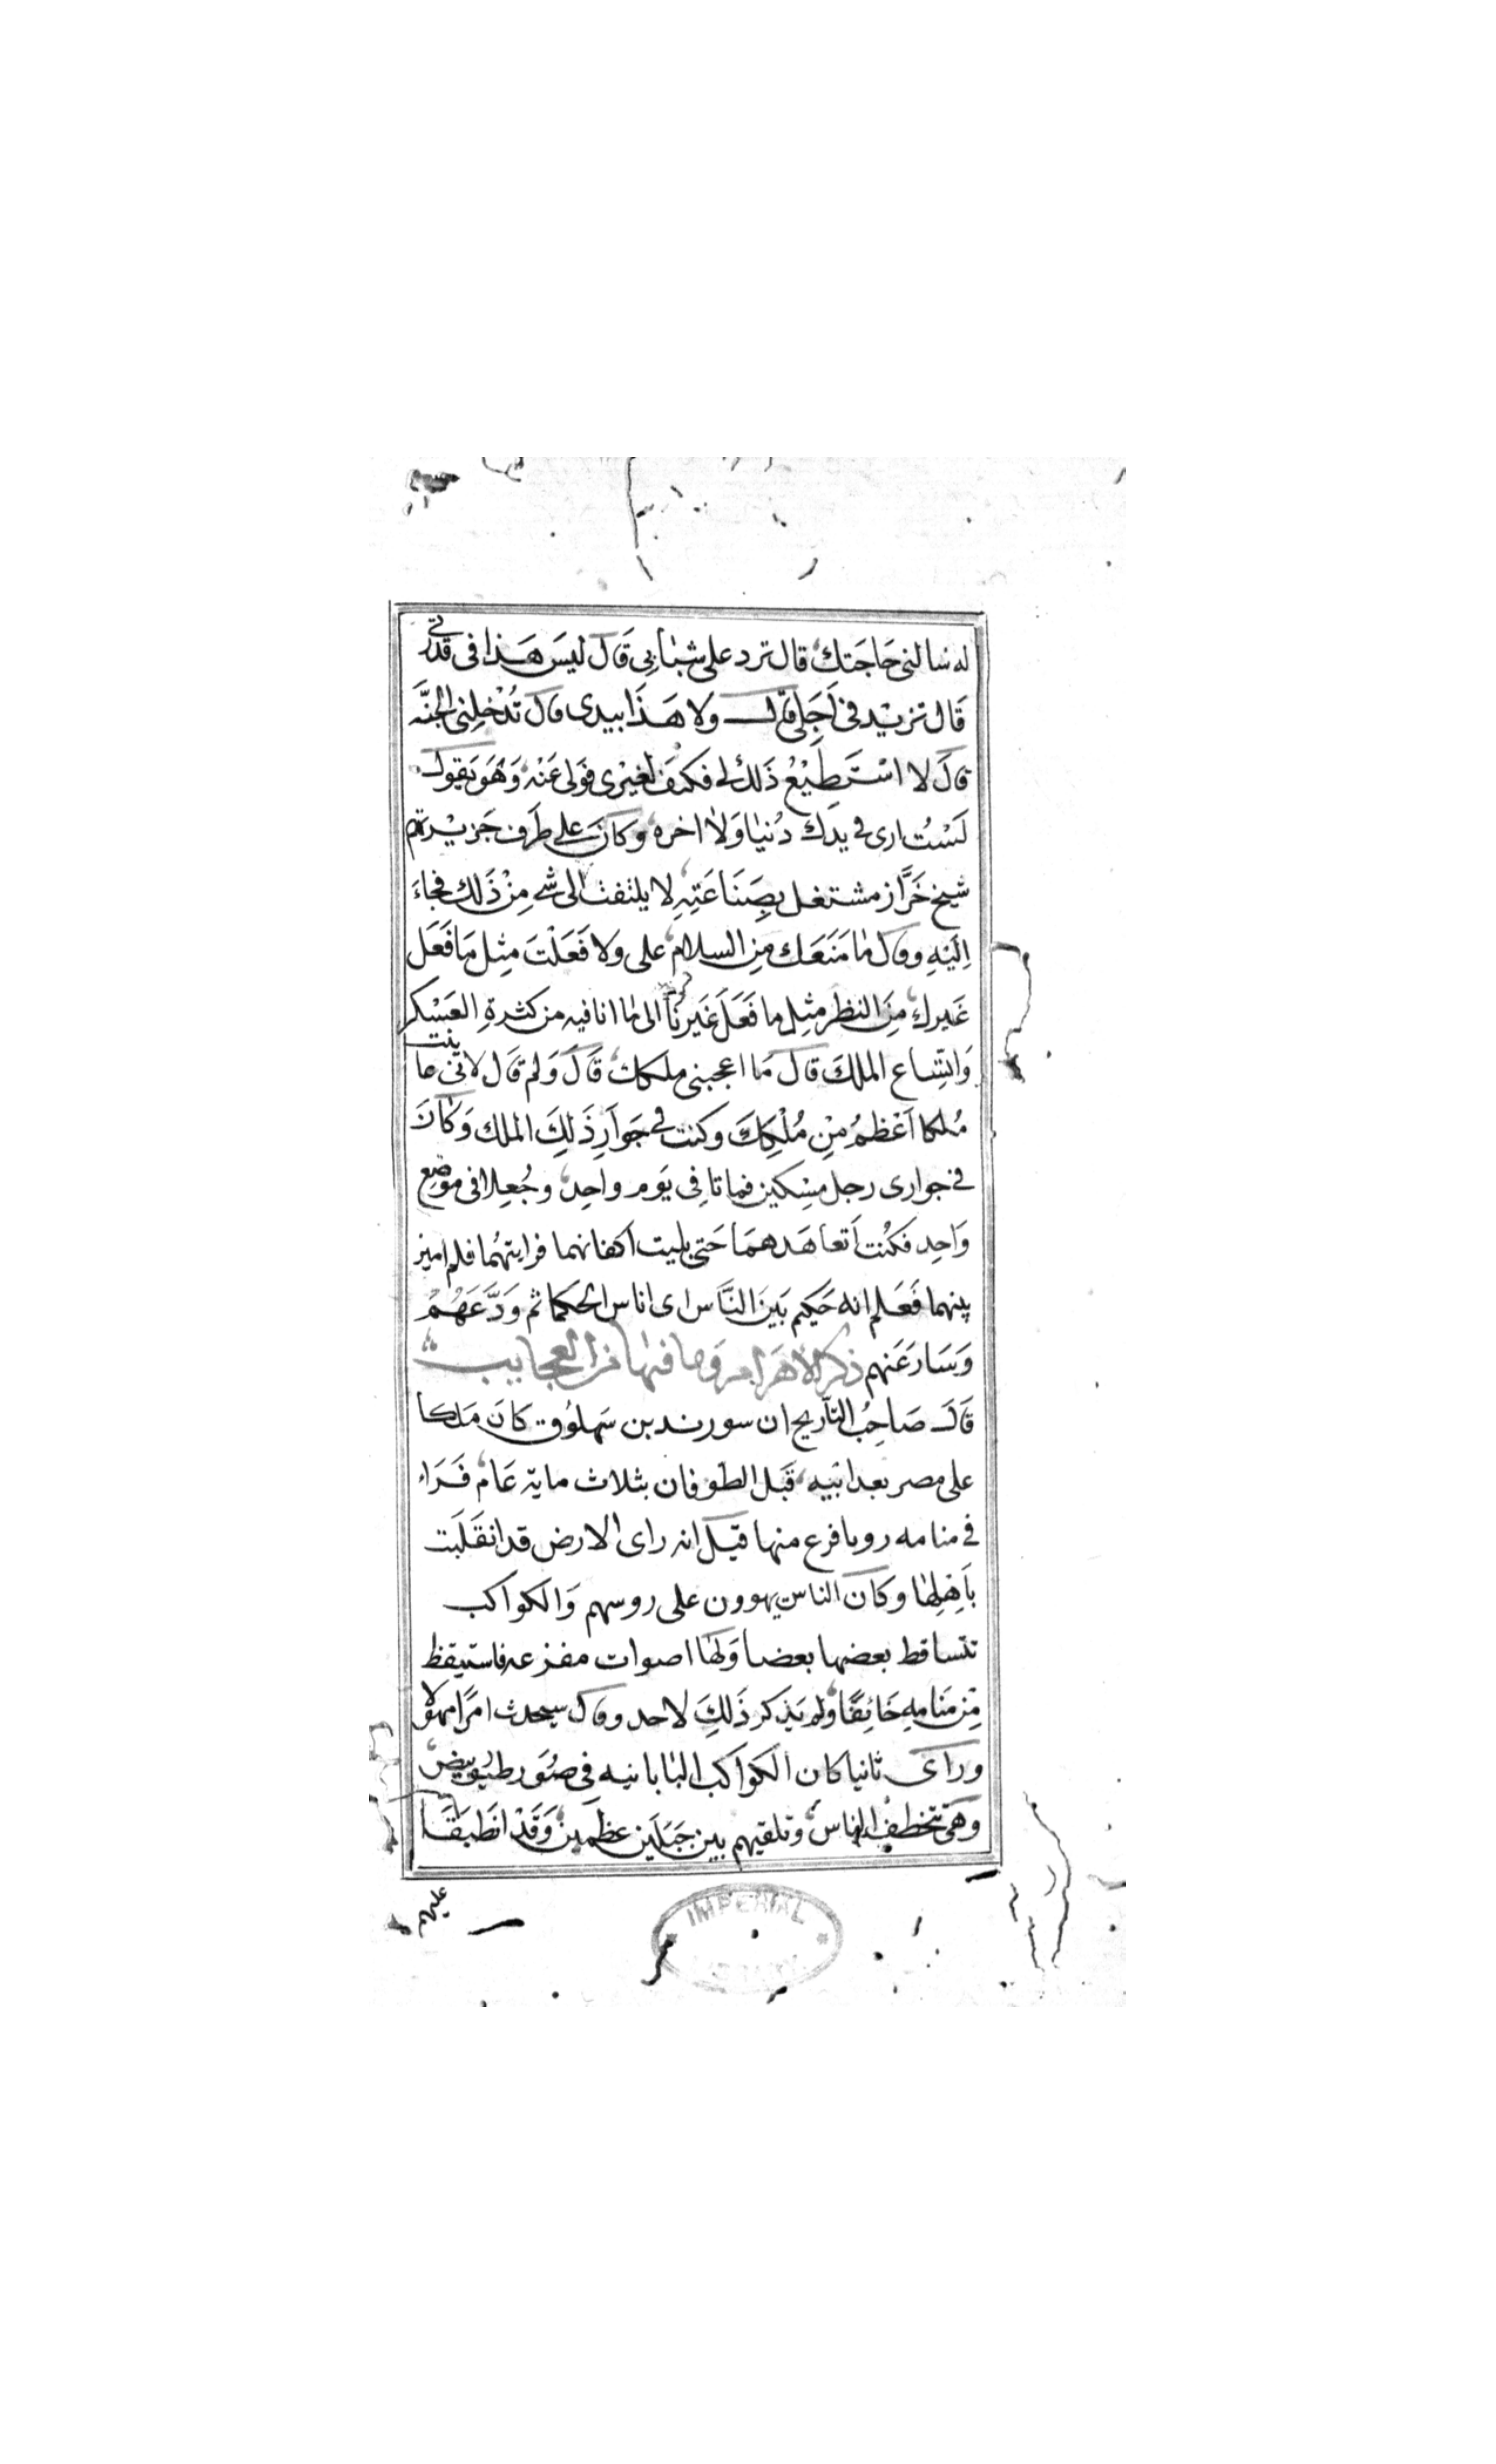 له سالني حَاجَتك قال ترد على شبابي قَالَ ليسَ هَذا في قدرتي
قَال تزيْد في اَجَلي قال ولا هَذَا بيدي قال تُدْخِلني الجنَّه
قالَ لا اسْتَطِيْعُ ذَلك لي فكيف لغيْري فولى عَنْه وَهُوَ يَقول
لَسْتُ ارى في يدك دُنيا وَلا اخره وَكانَ على طرَف جَزيْرتهم
شيخ خَرَّاز مشتغل بصِنَاعَتِهِ لا يلتفت الى شي مِنْ ذَلك فجاءَ
اِليْهِ وقال ما مَنَعَك مِن السلام على ولا فَعَلْتَ مِثل مَا فَعَل
غَيرك مِنَ النظر مثل ما فَعَلَ غَيرنا الى ما انا فيه من كثرةِ العَسْكر
وَاتِّساع الملك قالَ مَا اعجبني ملكك قَالَ وَلم قَال لاني عاينت
مُلكا اَعْظمُ مِنْ مُلْكِكَ وكنت في جَوَارِ ذَلِكَ الملك وَكانَ
في جواري رجل مِسْكين فماتا في يَوم واحِد وجُعِلا في موضِع
وَاحِد فَكنْت اَتعاهَدهمَا حَتى بليت اكفانهما فرايتهُما فلم اميز
بينهما فَعَلم انه حَكيم بَين النَّاس اي اناس الحكما ثم وَدَّعَهُمْ
وَسَارَ عَنهم ذكر الأهرَام وَما فيها من العجايب
قَالَ صَاحِبُ التأريخ ان سورند بن سَهلوُق كانَ مَلكا
على مصر بعد ابيه قَبل الطوفان بثلاث مايه عَام فَرَاء
في منامه رويا فزع منها قيل انه راى الارض قد انقَلَبت
بأهْلِها وكانَ الناس يهوون على روسهم وَالكواكب
تتساقط بعضها بعضا وَلها اصوات مفزعه فاستيقظ
مِن مَنامِهِ خَائِفًا ولم يَذكر ذَلِكَ لاحد وقال سيحدث امرًا مهولا
وراى ثانيا كان الكواكب البابانيه في صُوَر طيُور بيض
وهيَ تتخطف الناس وتلقيهم بين جَبَلَين عظمين وَقَدْ انطَبقَا
عليهم
IMPERIAL